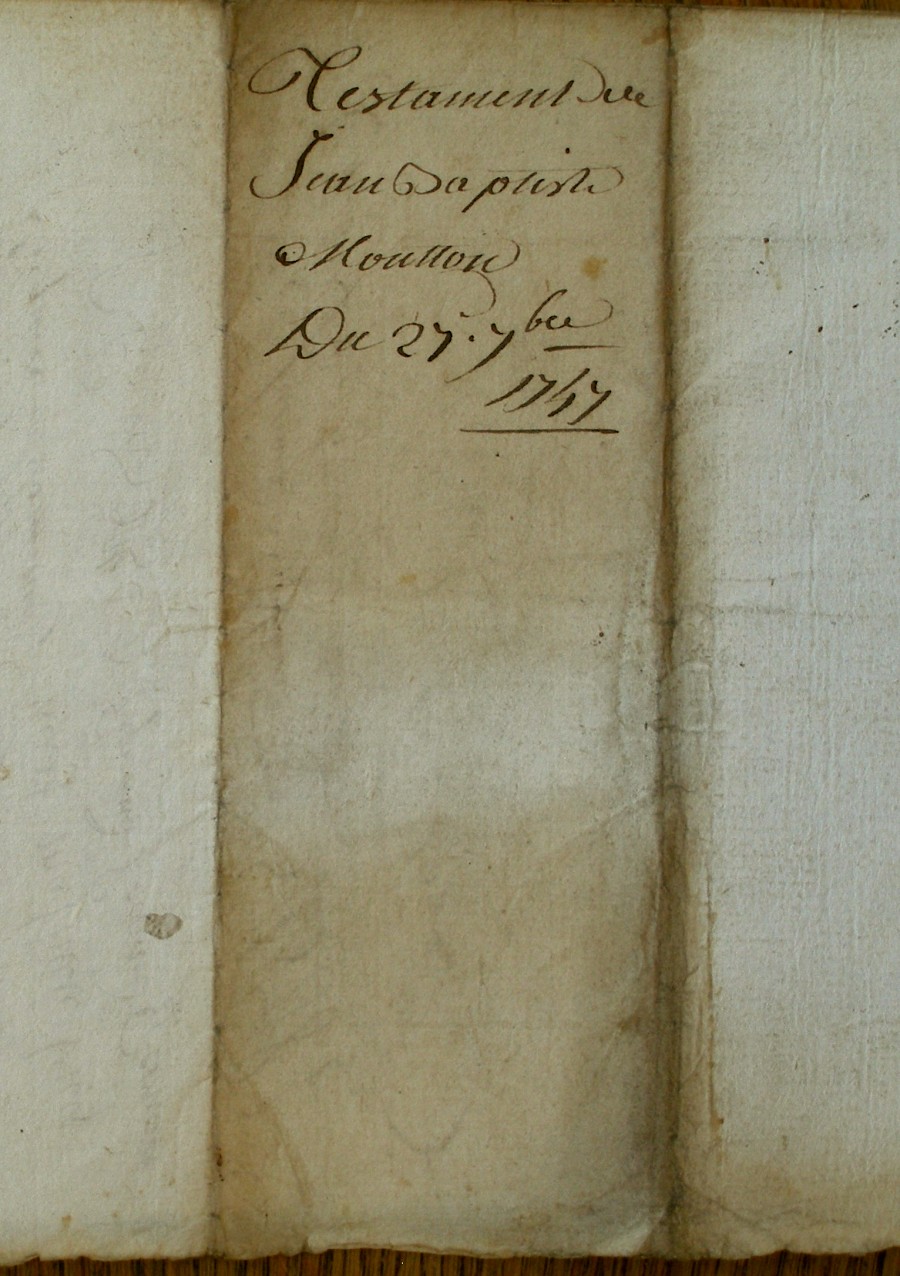 Testament de
Jean Baptiste
Moutton
Du 27. 7bre
1747